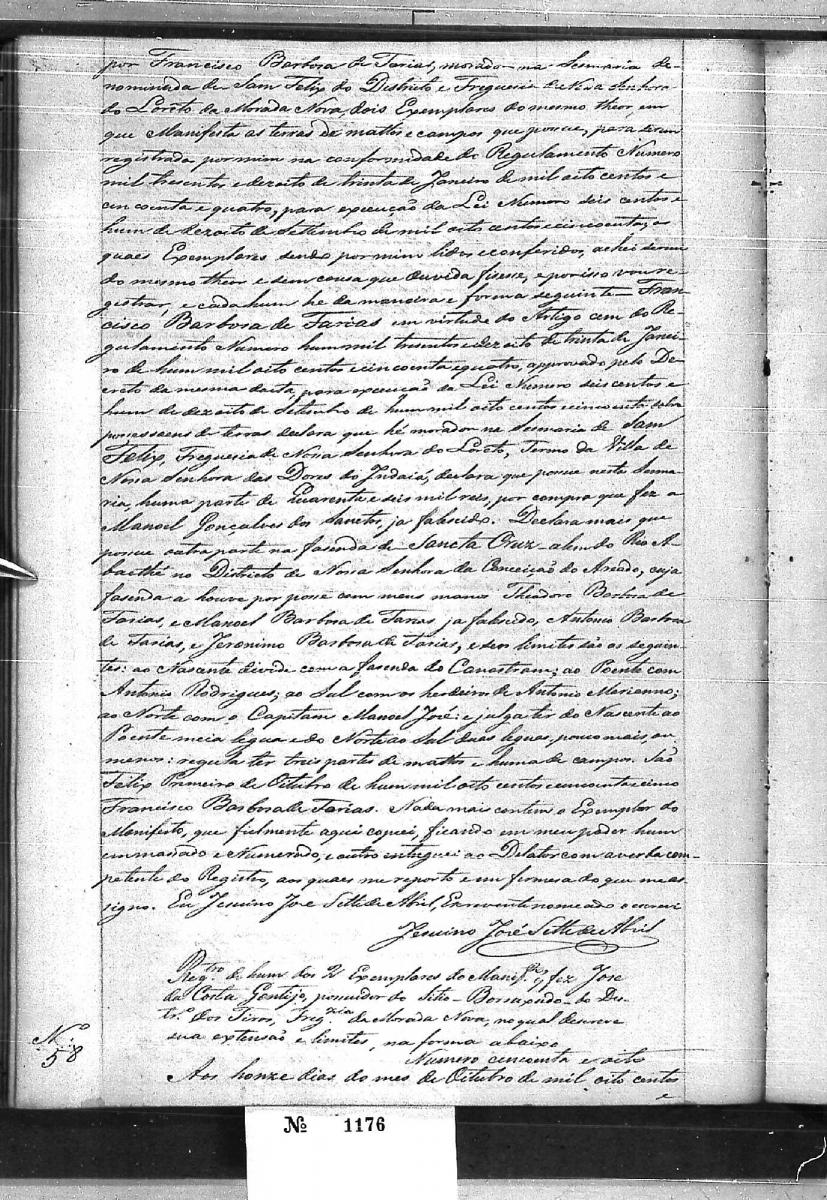 por Francisco Barbosa de Farias, morador na Sesmaria de-
nominada de Sam Felix do Districto e Freguesia de Nossa Senhora
do Loreto da Morada Nova, dois Exemplares do mesmo theor, em
que Manifesta as terras de mattos e campos que possue, para serem
registrada por mim na conformidade do Regulamento Numero
mil tresentos e dezoito de trinta de Janeiro de mil oito centos e
cincoenta e quatro, para execução da Lei Numero seis centos e
hum de dezoito de Settembro de mil oito centos e cincoenta, o
quaes Exemplares sendo por mim lidos e conferidos, achei serem
do mesmo theor e sem cousa que duvida fisesse, e por isso vou re-
gistrar, e cada hum he da maneira e forma seguinte — Fran
cisco Barbosa de Farias em virtude do Artigo cem do Re-
gulamento Numero hum mil tresentos e dezoito de trinta de Janei-
ro de hum mil oito centos e cincoenta e quatro, approvado pelo De-
creto da mesma dacta, para execução da Lei Numero seis centos e
hum de dezoito de Setembro de hum mil oito centos e cincoenta sobre
possessoens de terras declara que hé morador na Sesmaria de Sam
Felix, Freguesia de Nossa Senhora do Loreto, Termo da Villa de
Nossa Senhora das Dores do Indaiá, declara que possue nesta Sesma-
ria, huma parte de Quarenta e seis mil reis, por compra que fez a
Manoel Gonçalves dos Sanctos, ja falescido. Declara mais que
possue outra parte na fasenda de Sancta Cruz alem do Rio A-
baethé no Districto de Nossa Senhora da Conceição do Areado, cuja
fasenda a houve por posse com meus manos Theodoro Barbosa de
Farias, e Manoel Barbosa de Farias ja falescido, Antonio Barbosa
de Farias, e Jeronimo Barbosa de Farias, e seos limites são os seguin-
tes: ao Nascente divide com a fasenda do Canastram; ao Poente com
Antonio Rodrigues; ao Sul com os herdeiros de Antonio Marianno;
ao Norte com o Capitam Manoel José: e julga ter do Nascente ao
Poente meia legua e do Norte ao Sul duas leguas, pouco mais, ou
menos: regula ter tres partes de mattos e huma de campos. São
Felix Primeiro de Oitubro de hum mil oito centos e cincoenta e cinco
Francisco Barbosa de Farias. Nada mais contem o Exemplar do
Manifesto, que fielmente aqui copiei, ficando em meu poder hum
emmassado e Numerado, e outro entreguei ao Delator com a verba com-
petente do Registro, aos quaes me reporto e em firmesa do que me as-
signo. Eu Jesuino José Sette de Abril, Escrevente nomeado o escrevi
Jesuino José Sette de Abril
Regtro. de hum dos 2 Exemplares do Manifto. q. fez José
da Costa Gontijo, possuidor do Sitio Borsaxudo do Dis
tro. dos Tiros, Fregzia. da Morada Nova, no qual descreve
sua extensão e limites, na forma abaixo
Numero cincoenta e oito
No.
58
Aos honze dias do mes de Oitubro de mil oito centos
e
No 1176